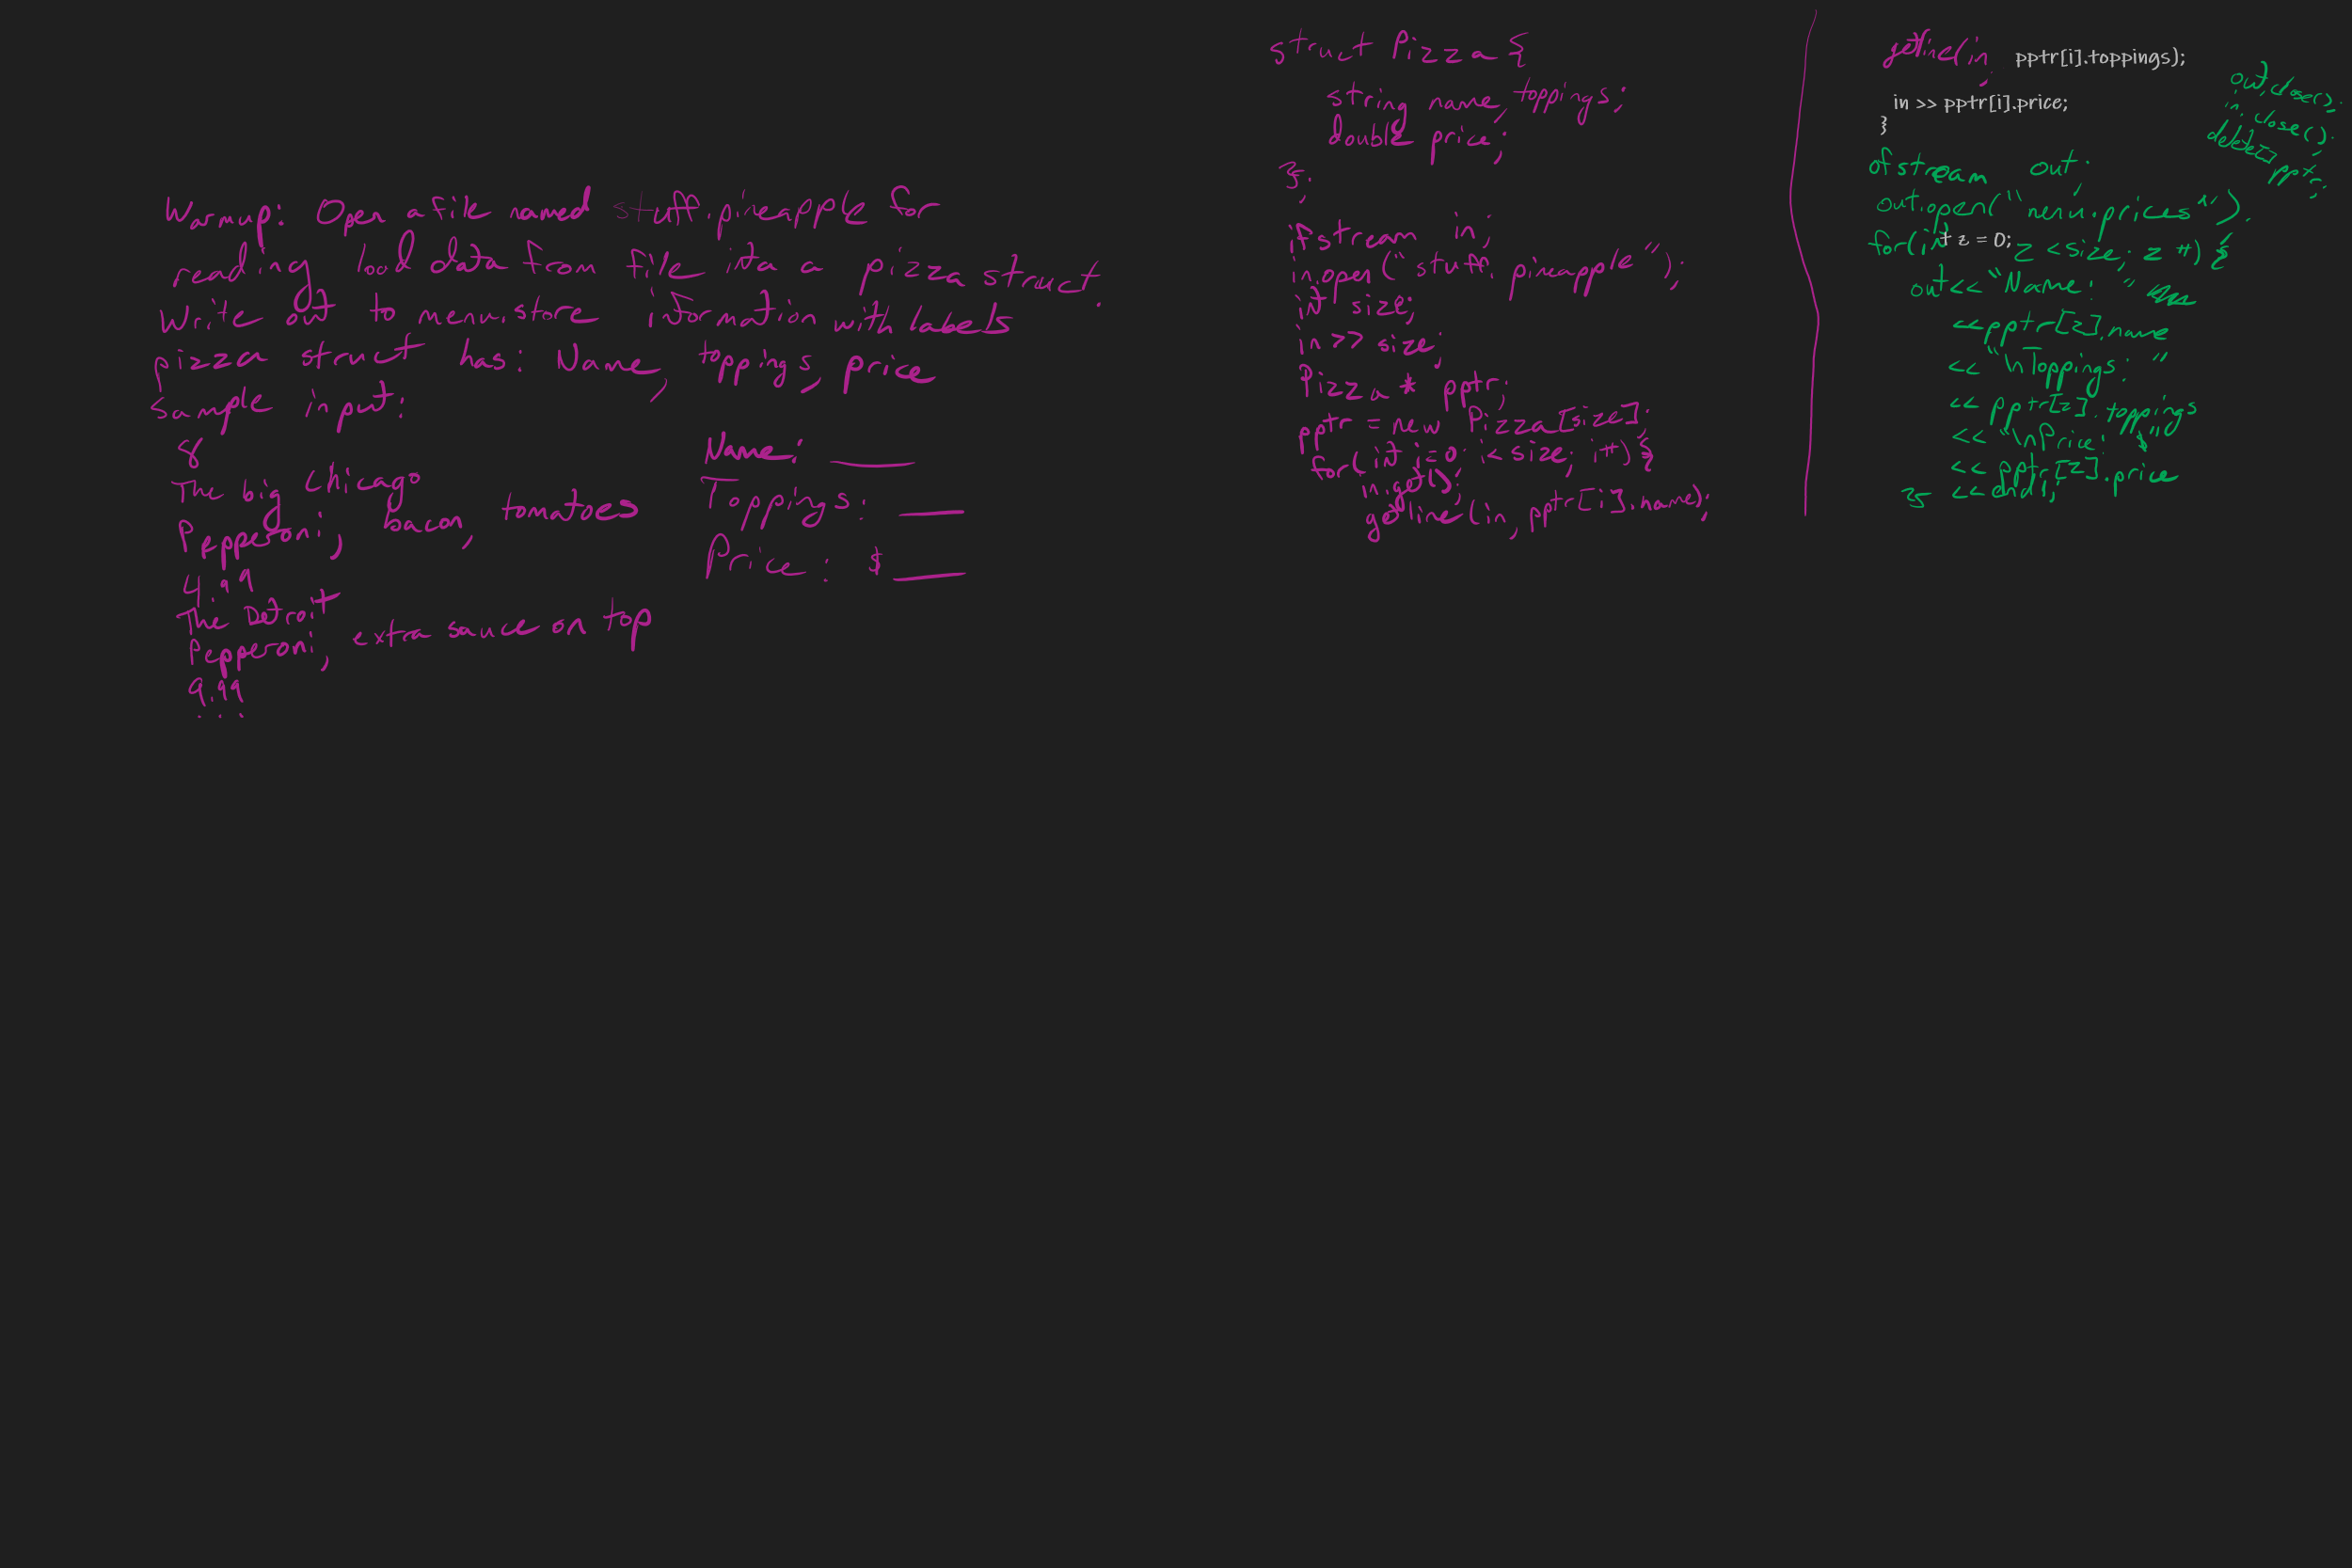 Warmup: Open a file named stuff.pineapple for
reading load data from file into a pizza struct.
Write out to menu.store information with labels
pizza struct has: Name, toppings, price
Sample input:
8
The big Chicago
Pepperoni, bacon, tomatoes
4.99
The Detroit
Pepperoni, extra sauce on top
9.99
...
Name: ____
Toppings: ____
Price: $____
struct Pizza{
string name, toppings;
double price;
};
ifstream in;
in.open("stuff.pineapple");
int size;
in >> size;
Pizza * pptr;
pptr = new Pizza[size];
for(int i=0; i<size; i++){
in.get();
getline(in, pptr[i].name);
getline(in, pptr[i].toppings);
in >> pptr[i].price;
}
ofstream out;
out.open("menu.prices");
for(int z = 0; z<size; z++){
out<<"Name: "
<<pptr[z].name
<<"\nToppings: "
<<pptr[z].toppings
<<"\nPrice: $"
<<pptr[z].price
} <<endl;
out.close();
in.close();
delete[] pptr;